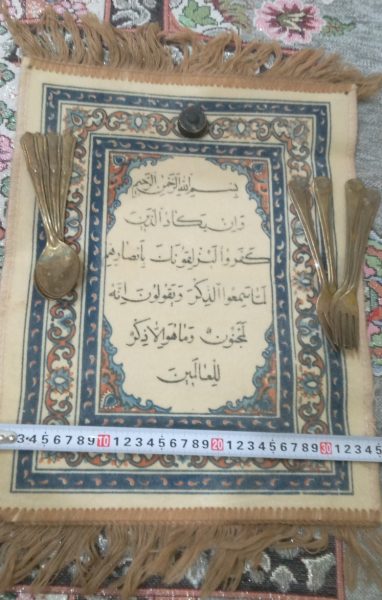 بسم الله الرحمن الرحيم
وان يكاد الذين
كفروا ليزلقونك بابصارهم
لما سمعوا الذكر و يقولون انه
لمجنون وما هو الا ذكر
للعالمين
3 4 5 6 7 8 9 10 1 2 3 4 5 6 7 8 9 20 1 2 3 4 5 6 7 8 9 30 1 2 3 4